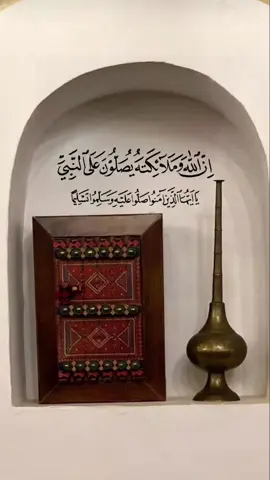 إِنَّ ٱللَّهَ وَمَلَـٰٓئِكَتَهُۥ يُصَلُّونَ عَلَى ٱلنَّبِيِّ
يَـٰٓأَيُّهَا ٱلَّذِينَ ءَامَنُوا۟ صَلُّوا۟ عَلَيْهِ وَسَلِّمُوا۟ تَسْلِيمًا